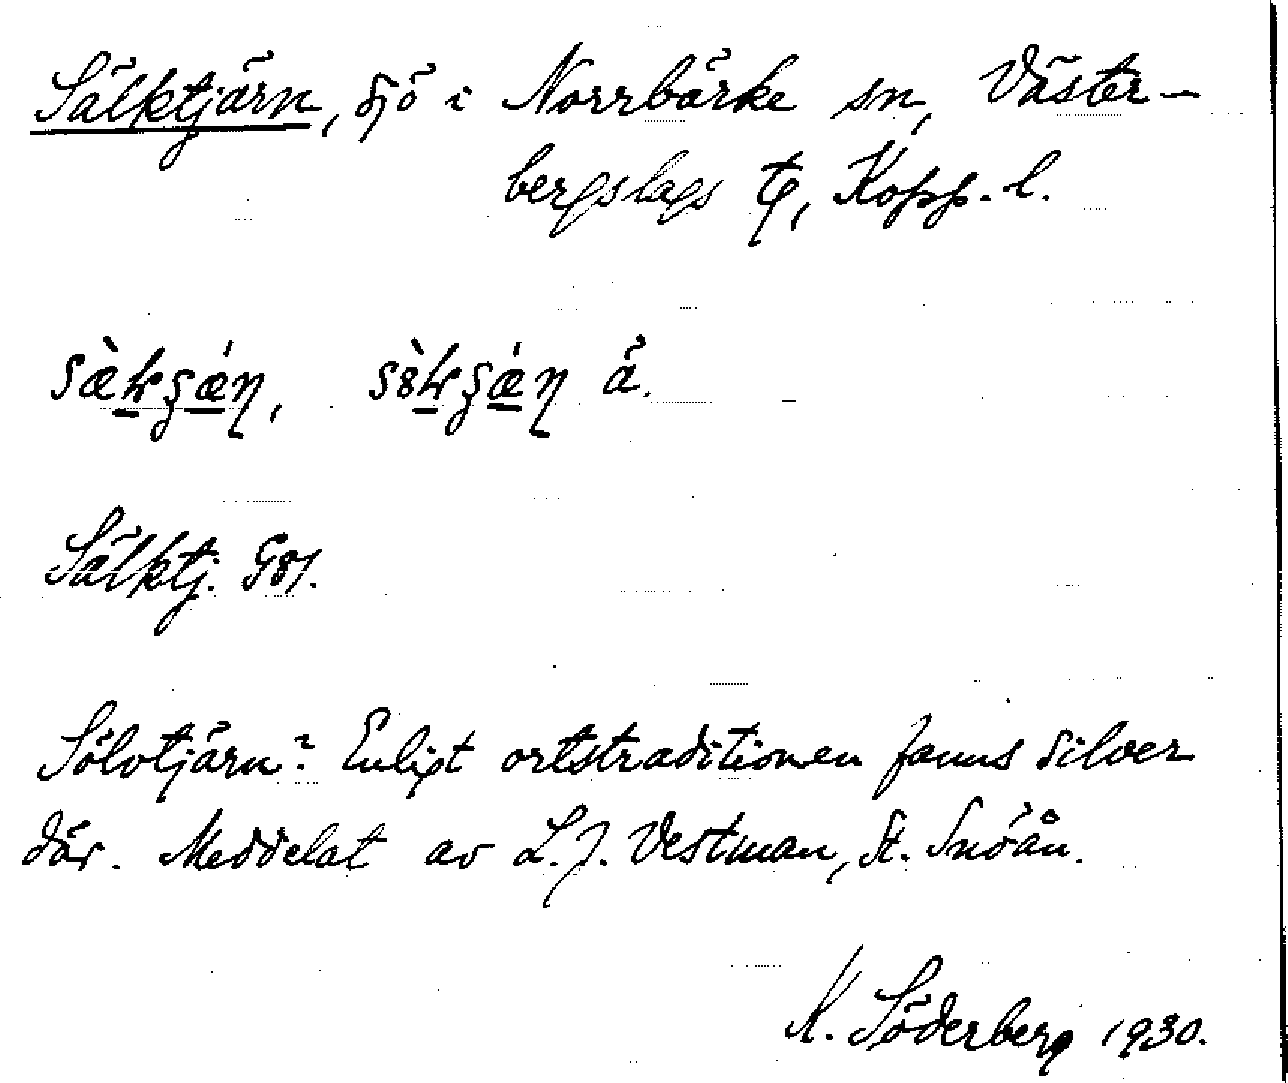 Sälktjärn, sjö i Norrbärke sn, Väster-
bergslags tg, Kopp. l.
ä.
Sälktj. G81.
Sölvtjärn? Enligt ortstraditionen fanns silver
där. Meddelat av L.J. Vestman, St. Snöån.
K. Söderberg 1930.